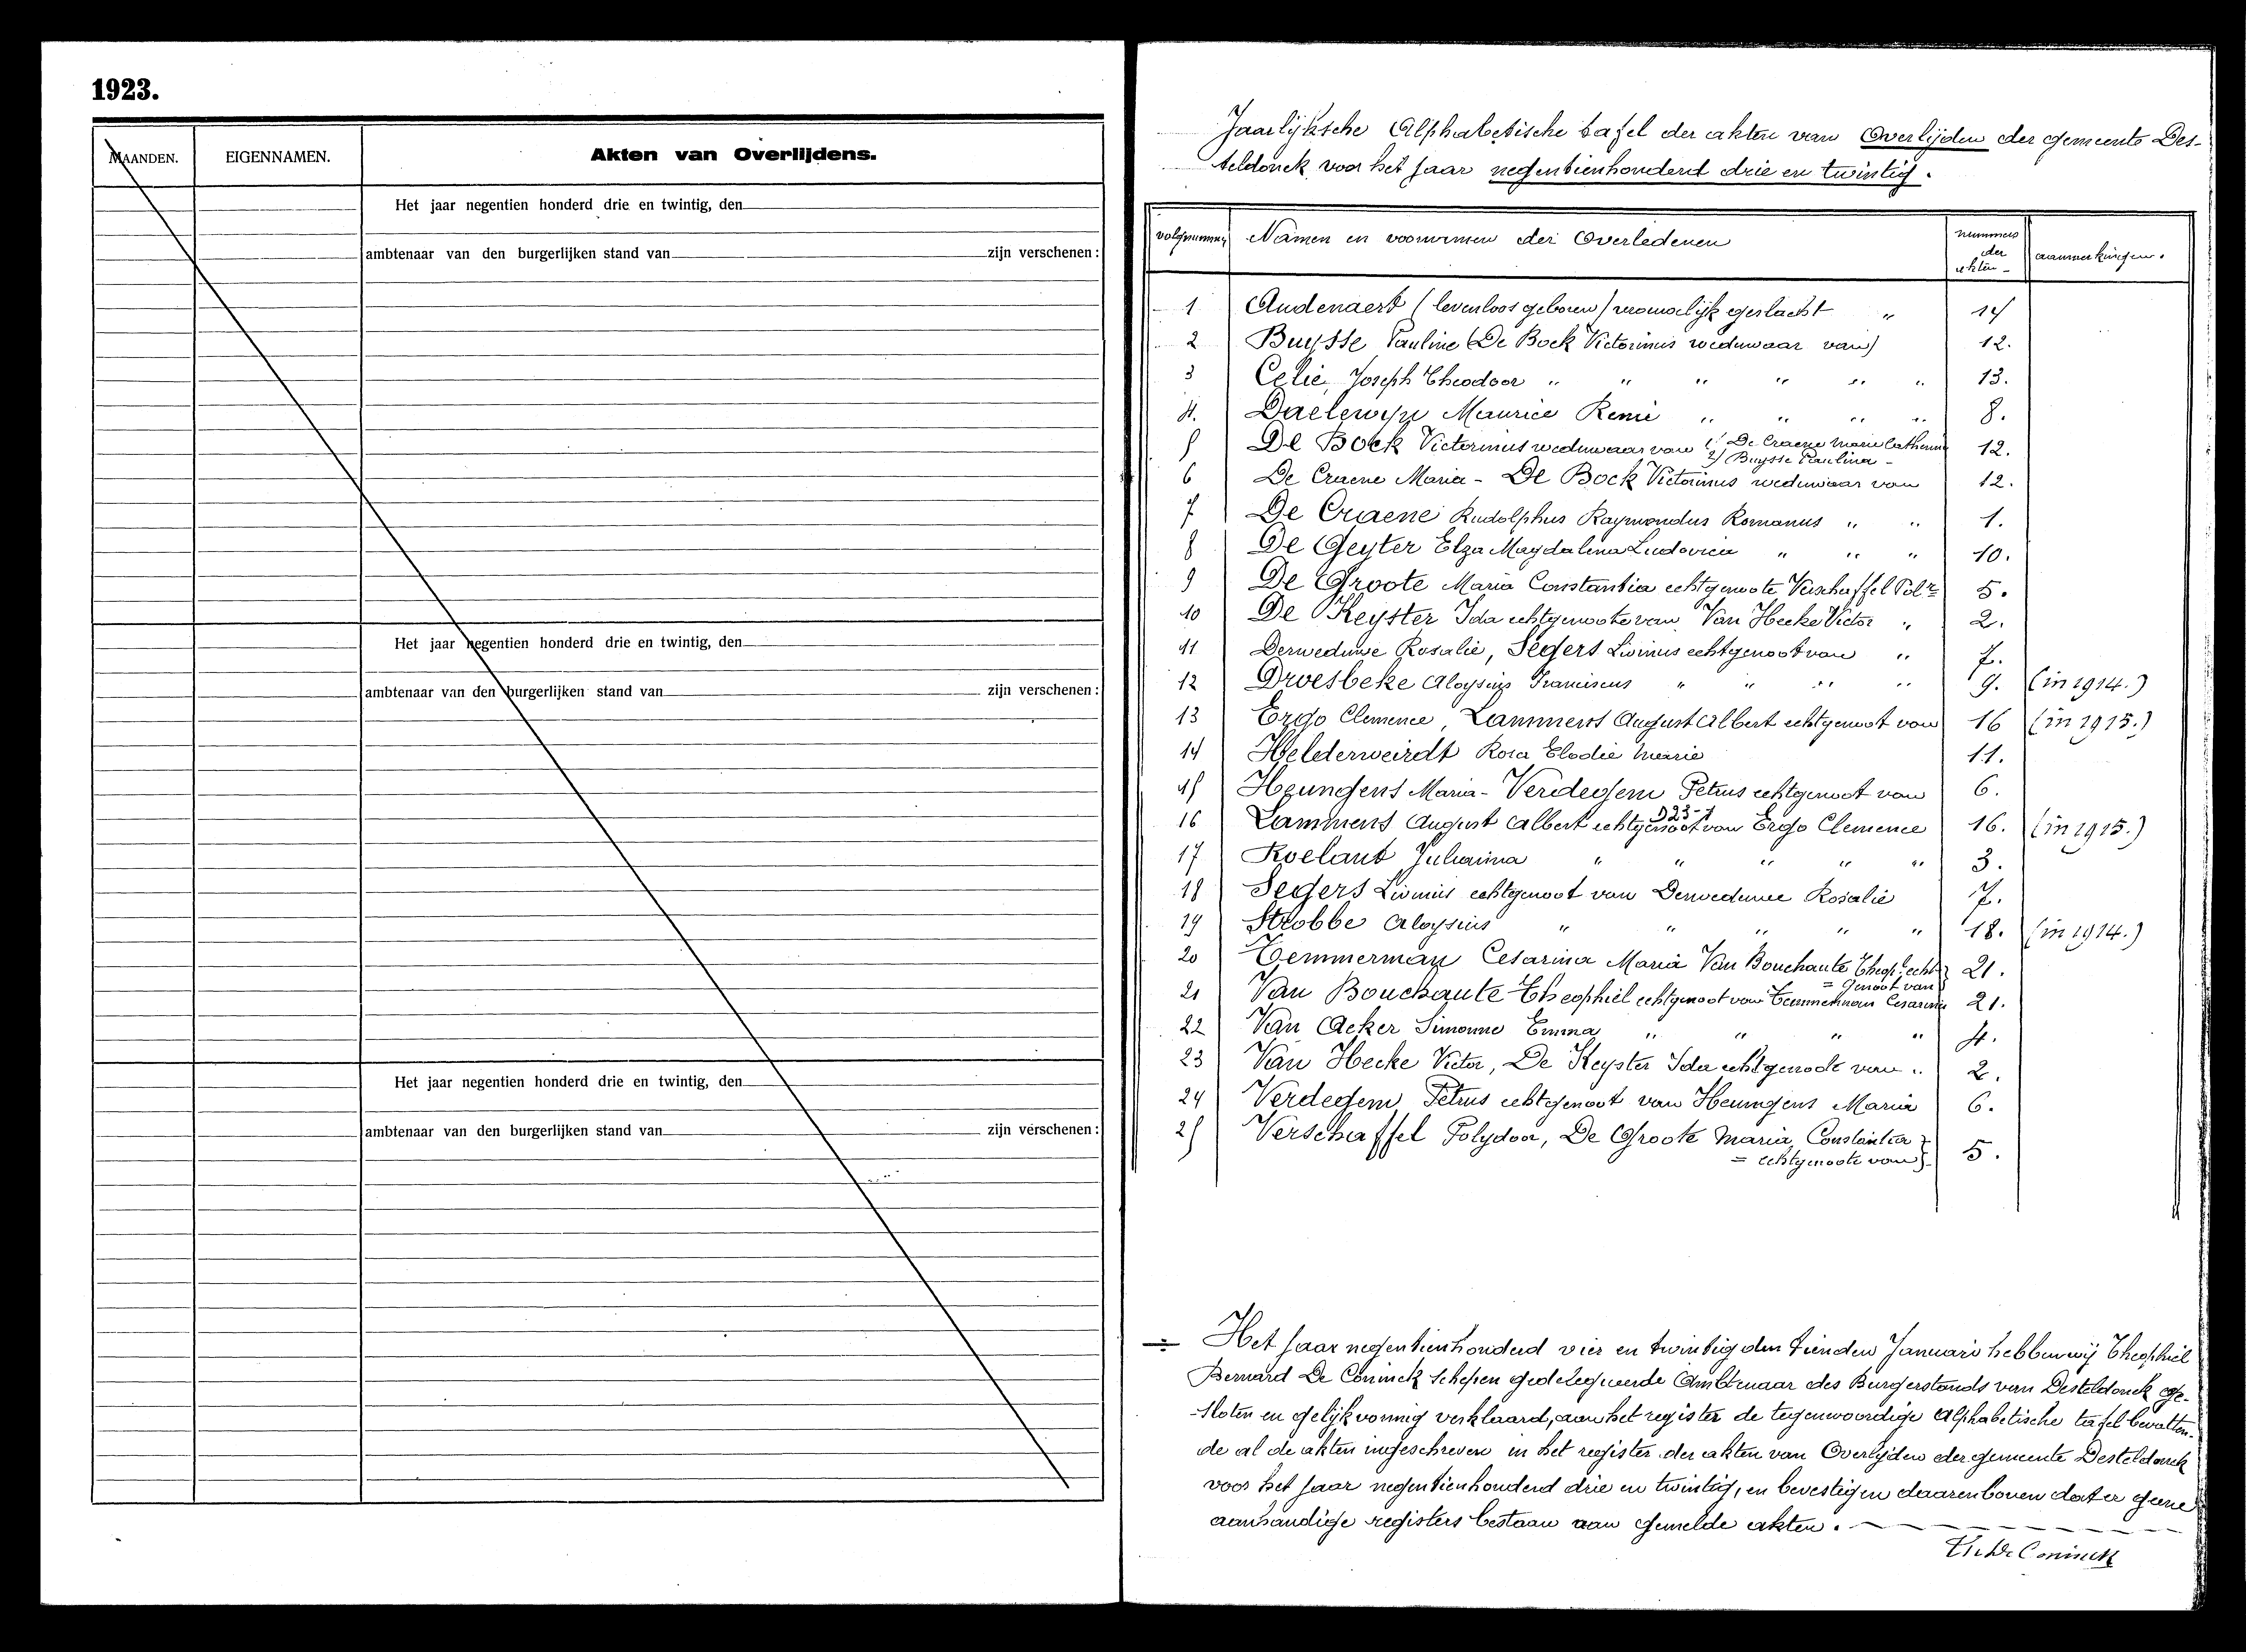 1923.
MAANDEN. EIGENNAMEN. Akten van Overlijdens.
Het jaar negentien honderd drie en twintig, den
ambtenaar van den burgerlijken stand van zijn verschenen:
Het jaar negentien honderd drie en twintig, den
ambtenaar van den burgerlijken stand van zijn verschenen:
Het jaar negentien honderd drie en twintig, den
ambtenaar van den burgerlijken stand van zijn verschenen:
Jaarlijksche Alphabetische tafel der akten van Overlijden der gemeente Des-
teldonck voor het jaar negentienhonderd drie en twintig.
volgnummer Namen en voornamen der Overledenen nummers der akten - aanmerkingen.
1 Audenaert (levenloos geboren) vrouwelijk geslacht " 14
2 Buysse Pauline (De Bock Victorinus weduwaar van) 12.
3 Celie, Joseph Theodoor " " " " " " 13.
4. Daelewijn Maurice René " " " " 8.
5 De Bock Victorinus weduwaar van 1/ De Craene Marie Catherine 12.
2/ Buysse Paulina -
6 De Craene Maria - De Bock Victorinus weduwaar van 12.
7 De Craene Rudolphus Raymondus Romanus " " 1.
8 De Geyter Elza Magdalena Ludovica " " " 10.
9 De Groote Maria Constantia echtgenoote Verschaffel Pol.r 5.
10 De Keyster Ida echtgenoote van Van Hecke Victor " 2.
11 Derweduwe Rosalie, Segers Livinus echtgenoot van " 7.
12 Droesbeke Aloysius Franciscus " " " " 9. (in 1914.)
13 Ergo Clemence, Lammens August Albert echtgenoot van 16 (in 1915.)
14 Helderweirdt Rosa Elodie Marie 11.
15 Heungens Maria - Verdegem Petrus echtgenoot van 6.
D23-1
16 Lammens August Albert echtgenoot van Ergo Clemence 16. (in 1915.)
17 Roelant Julianna " " " " " 3.
18 Segers Livinus echtgenoot van Derweduwe Rosalie 7.
19 Strobbe Aloysius " " " " " 18. (in 1914.)
20 Temmerman Cesarina Maria Van Bouchaute Theop. echt- 21.
= genoot van
21 Van Bouchaute Theophiel echtgenoot van Temmerman Cesarina 21.
22 Van Acker Simonne Emma " " " " 4.
23 Van Hecke Victor, De Keyster Ida echtgenoote van " 2.
24 Verdegem Petrus echtgenoot van Heungens Maria 6.
25 Verschaffel Polydoor, De Groote Maria Constantia 5.
= echtgenoote van
Het jaar negentienhonderd vier en twintig den tienden Januari hebben wij Theophiel
Bernard De Coninck Schepen gedelegueerde Ambtenaar des Burgerstands van Desteldonck ge-
sloten en gelijkvormig verklaard, aan het register de tegenwoordige Alphabetische tafel bevatten-
de al de akten ingeschreven in het register der akten van Overlijden der gemeente Desteldonck
voor het jaar negentienhonderd drie en twintig, en bevestigen daarenboven dat er geene
aanhandige registers bestaan aan gemelde akten.
De Coninck